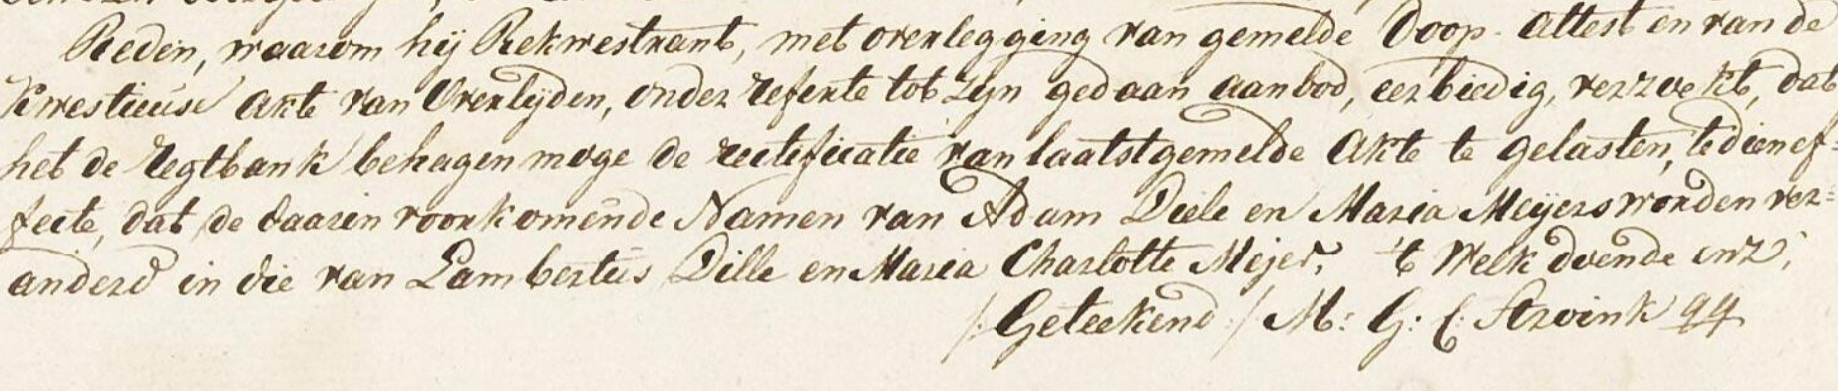 Reden, waarom hij Rekwestrant, met overlegging van gemelde Doop-Attest en van de
kwestieuse Akte van Overlijden, onder referte tot zijn gedaan aanbod, eerbiedig, verzoekt, dat
het de Regtbank behagen moge de rectificatie van laatstgemelde Akte te gelasten, te dien ef=
fecte, dat de daarin voorkomende Namen van Adam Diele en Maria Meijers worden ver=
anderd in die van Lambertus Dille en Maria Charlotte Mejer, 't Welk doende enz;
/:Geteekend:/ M: G: C: Stroink qq